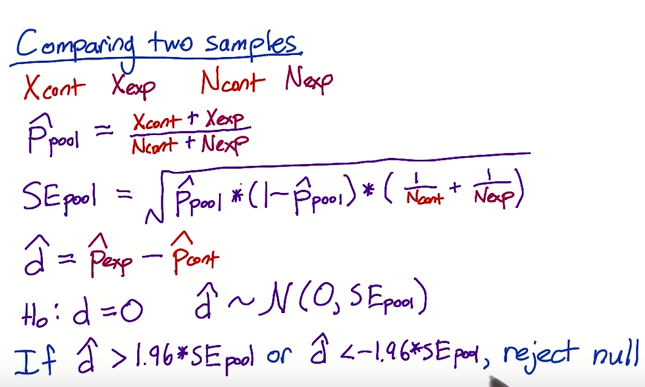 Comparing two samples
Xcont Xexp Ncont Nexp
p̂pool = Xcont + Xexp / Ncont + Nexp
SEpool = √p̂pool * (1-p̂pool) * (1/Ncont + 1/Nexp)
d̂ = p̂exp - p̂cont
H₀: d = 0 d̂ ~ N(0, SEpool)
If d̂ > 1.96*SEpool or d̂ < -1.96*SEpool, reject null